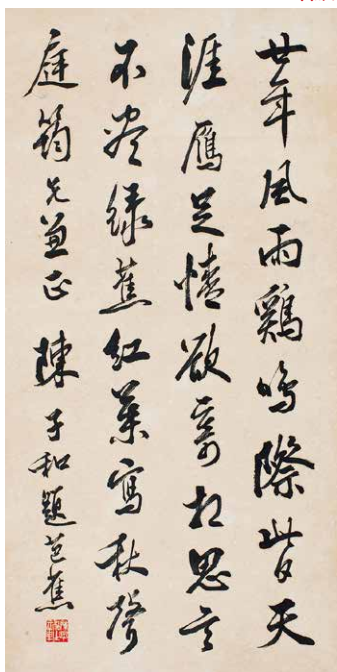 廿年風雨鷄鳴際此日天
涯鴈足情欲寄相思言
不盡綠蕉紅葉寫秋聲
庭筠兄兼正 陳子和題芭蕉